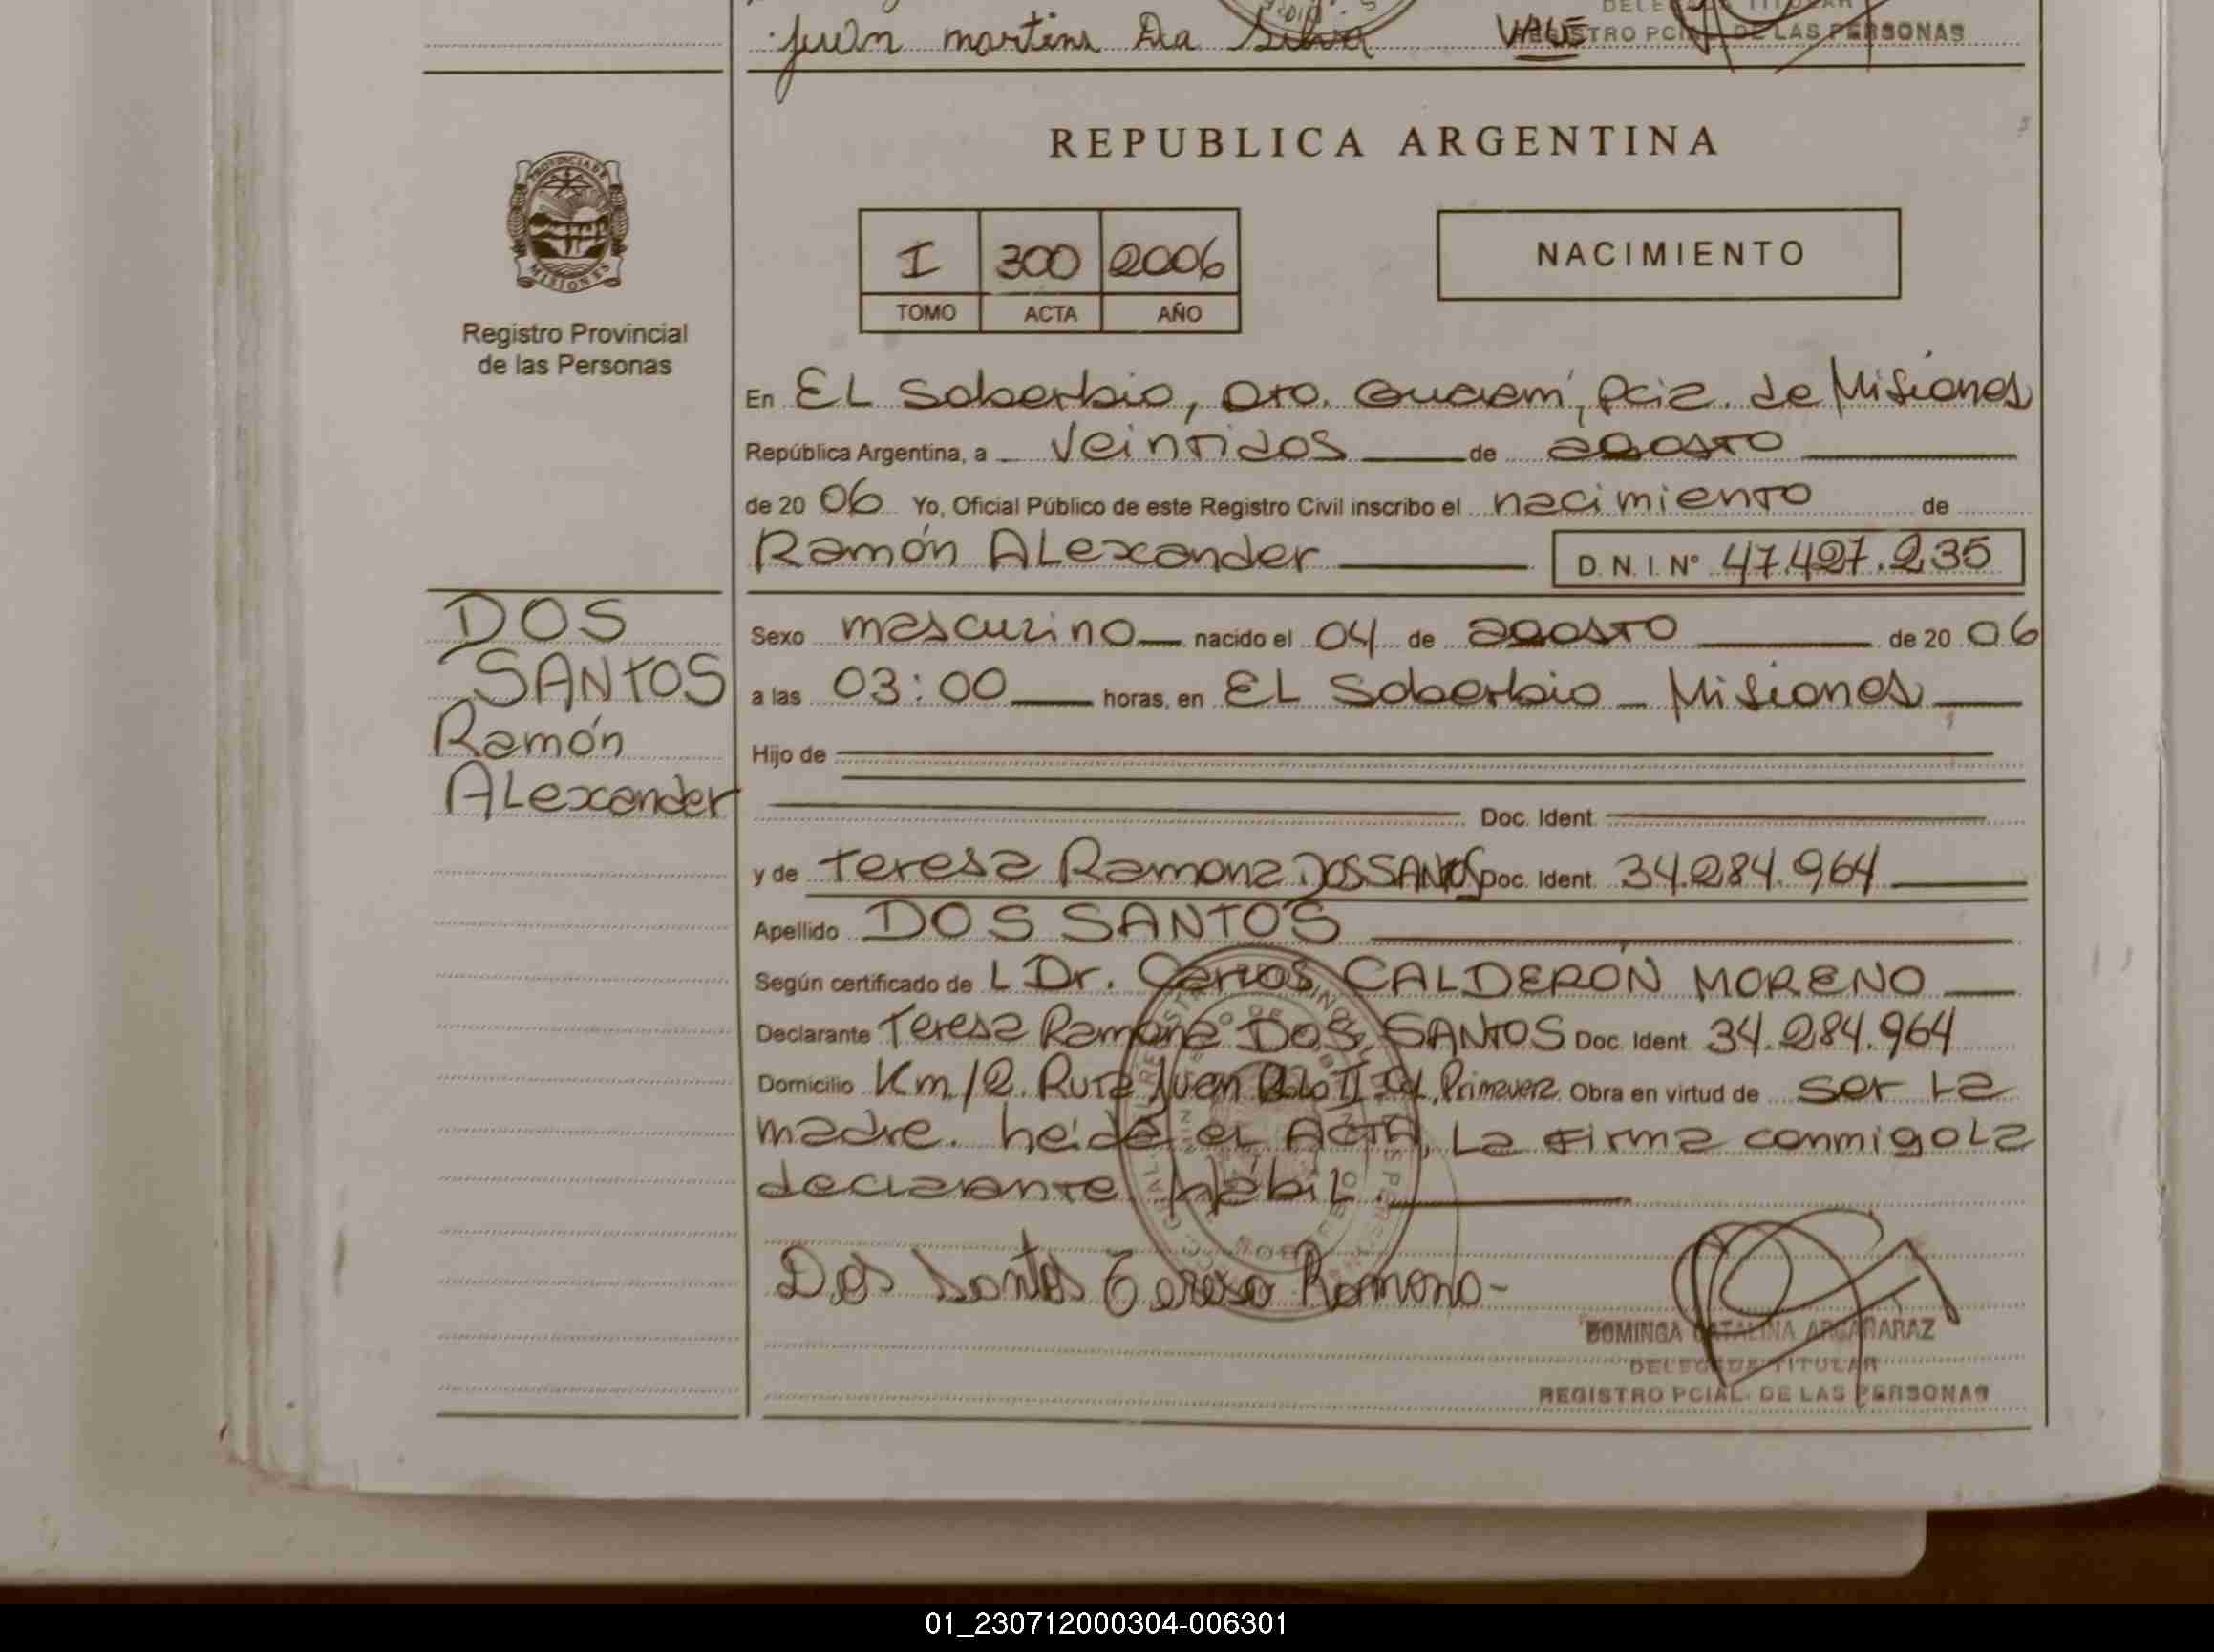 Juan martins Da Silva VALE
DELEGADA TITULAR
REGISTRO PCIAL. DE LAS PERSONAS
REPUBLICA ARGENTINA
PROVINCIA DE
MISIONES
Registro Provincial
de las Personas
I 300 2006
TOMO ACTA AÑO
NACIMIENTO
En EL Soberbio, Dto. Guaraní, Pcia. de Misiones
República Argentina, a veintidos de agosto
de 20 06 Yo, Oficial Público de este Registro Civil inscribo el nacimiento de
Ramón ALexander D.N.I. Nº 47.427.235
DOS
SANTOS
Ramón
ALexander
Sexo masculino nacido el 04 de agosto de 20 06
a las 03:00 horas, en EL Soberbio - Misiones
Hijo de
Doc. Ident.
y de teresa Ramona DOS SANTOS Doc. Ident. 34.284.964
Apellido DOS SANTOS
Según certificado de L Dr. Carlos CALDERÓN MORENO
Declarante Teresa Ramona DOS SANTOS Doc. Ident. 34.284.964
Domicilio Km/2. Ruta Juan Pablo II Col. Primavera Obra en virtud de ser La
madre. heida el ACTA, La firma conmigo La
declarante Hábil.
Dos Santos Teresa Ramona-
DOMINGA CATALINA ARGAÑARAZ
DELEGADA TITULAR
REGISTRO PCIAL. DE LAS PERSONAS
01_230712000304-006301